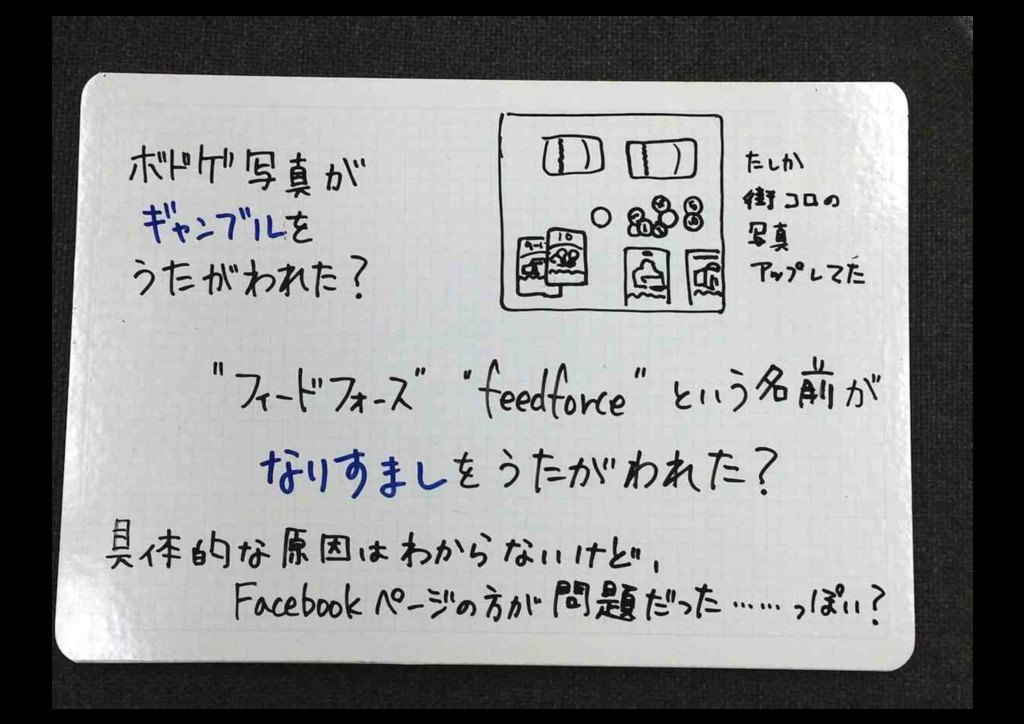 ボドゲ写真が
ギャンブルを
うたがわれた?
たしか
街コロの
写真
アップしてた
9-1
10
"フィードフォース" "feedforce" という名前が
なりすましをうたがわれた?
具体的な原因はわからないけど、
Facebookページの方が問題だった……っぽい?